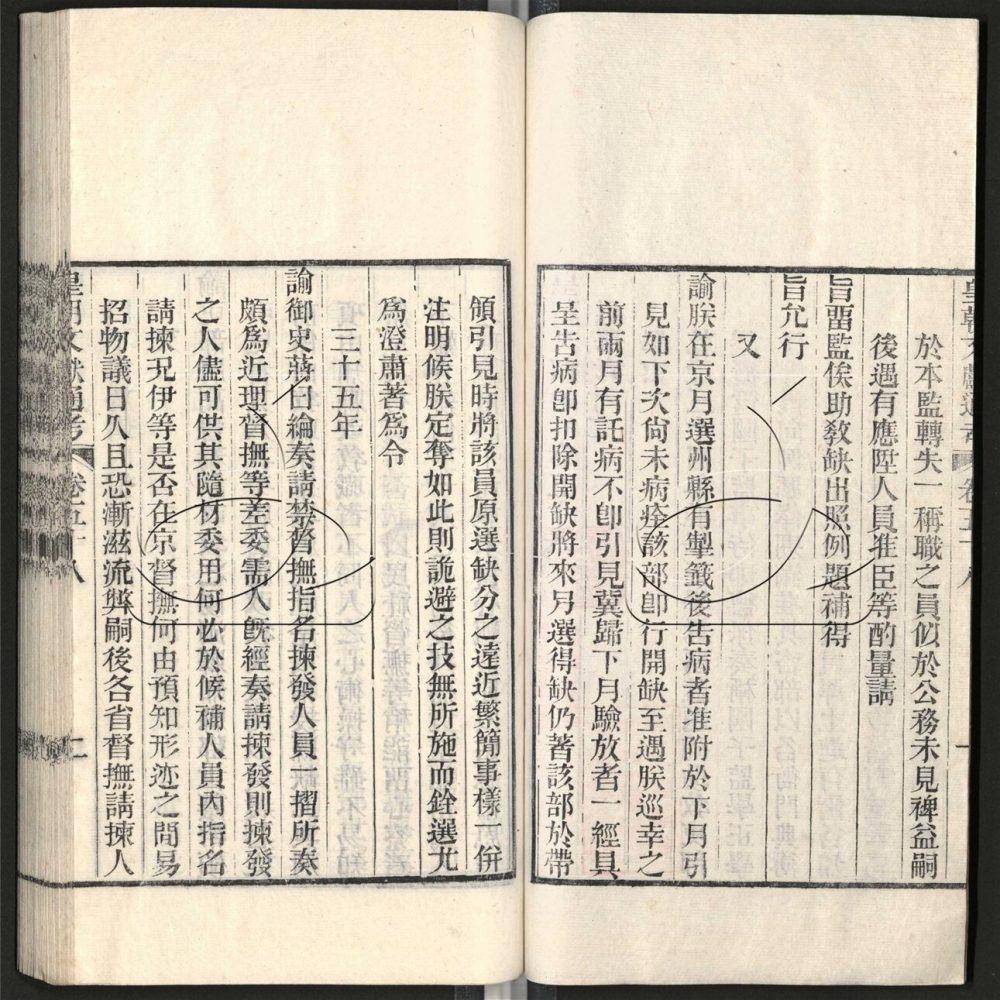 皇朝文獻通考 卷五十八
於本監轉失一稱職之員似於公務未見裨益嗣
後遇有應陞人員准臣等酌量請
旨畱監俟助敎缺出照例題補得
旨允行
又
諭朕在京月選州縣有掣籤後告病者准附於下月引
見如下次尙未病痊該部卽行開缺至遇朕巡幸之
前兩月有託病不卽引見冀歸下月驗放者一經具
呈告病卽扣除開缺將來月選得缺仍著該部於帶
領引見時將該員原選缺分之遠近繁簡事樣一併
注明候朕定奪如此則詭避之技無所施而銓選尤
爲澄肅著爲令
三十五年
諭御史蔣曰綸奏請禁督撫指名揀發人員一摺所奏
頗爲近理督撫等差委需人旣經奏請揀發則揀發
之人儘可供其隨材委用何必於候補人員內指名
請揀況伊等是否在京督撫何由預知形迹之間易
招物議日久且恐漸滋流弊嗣後各省督撫請揀人
皇朝文獻通考 卷五十八